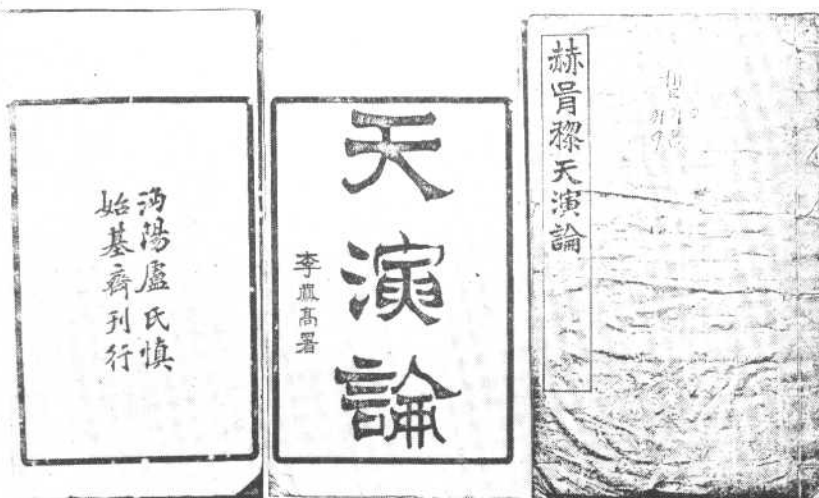 赫胥黎天演論
天演論
李 高署
沔陽盧氏慎
始基齋刊行